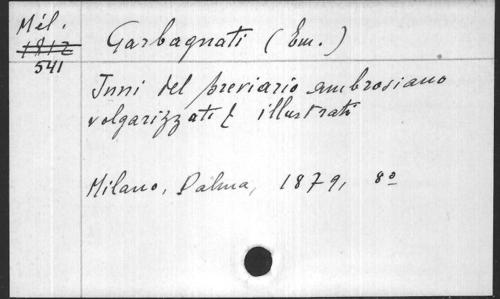 Mél.
1812
541
Garbagnati (Em.)
Inni del breviario ambrosiano
volgarizzati e illustrati
Milano, Palma, 1879, 8º